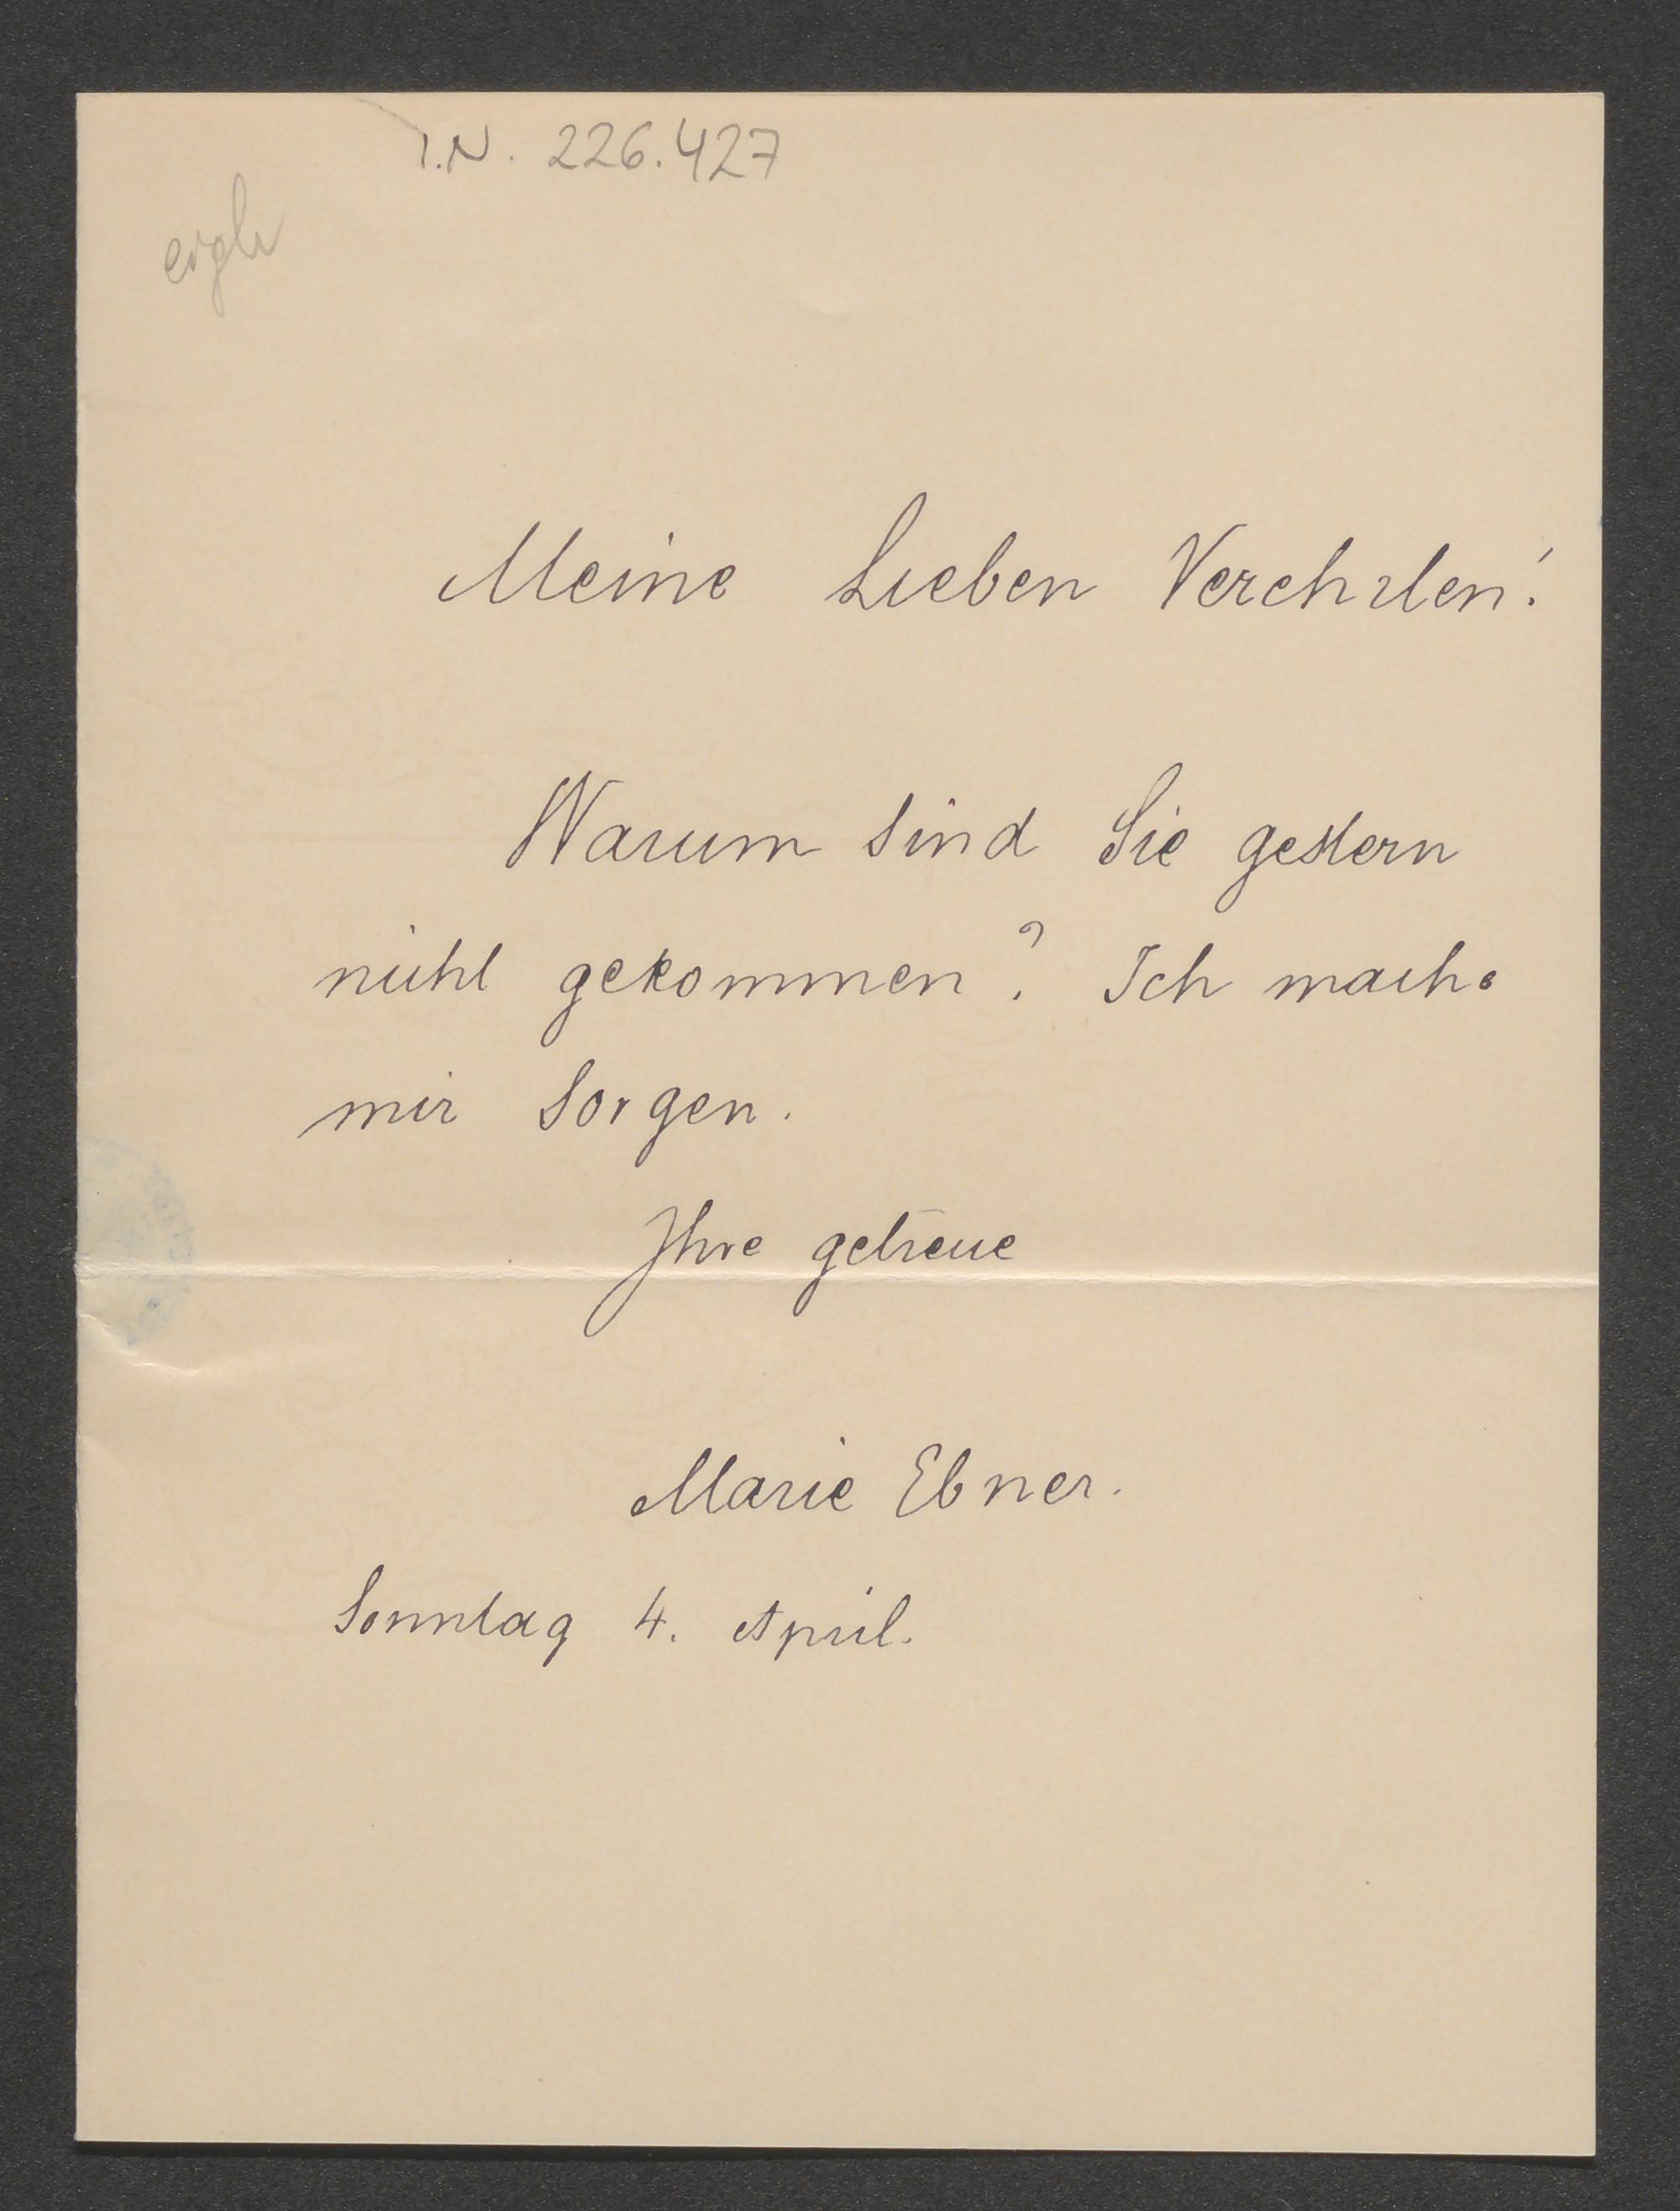 I.N. 226.427
Meine Lieben Verehrten!
Warum sind Sie gestern
nicht gekommen? Ich mache
mir Sorgen.
Ihre getreue
Marie Ebner.
Sonntag 4. April.